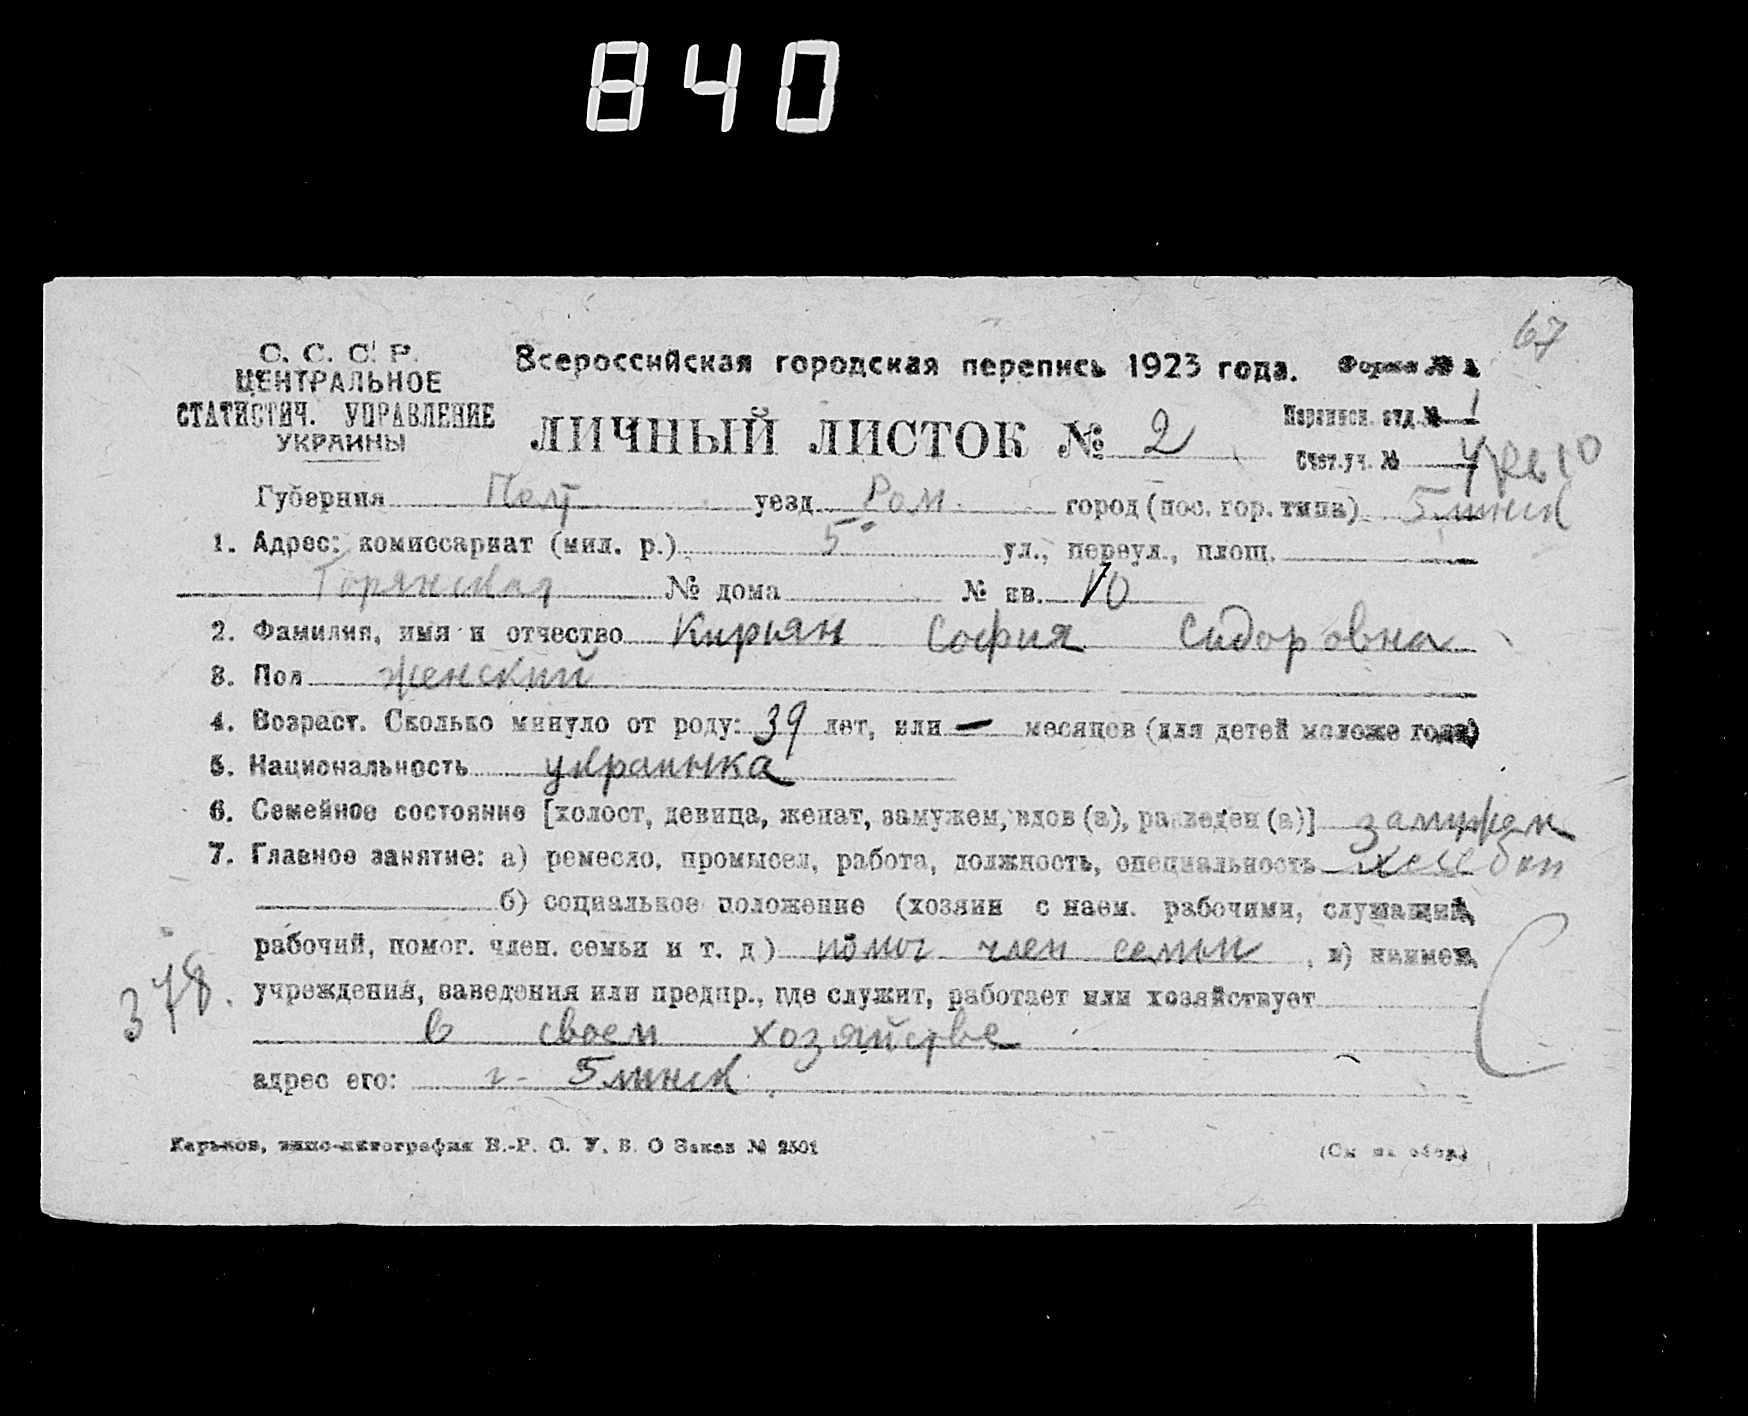 840
67
С. С. С. Р.
ЦЕНТРАЛЬНОЕ
СТАТИСТИЧ. УПРАВЛЕНИЕ
УКРАИНЫ
Всероссийская городская перепись 1923 года. Форма №
ЛИЧНЫЙ ЛИСТОК № 2
Переписн. отд. № 1
Счет. уч. №
Губерния Полт уезд Ром. город (пос. гор. типа)
1. Адрес: комиссариат (мил. р.) 5 ул., переул., площ.
Горянская № дома № кв. 10
2. Фамилия, имя и отчество Кирьян София Сидоровна
3. Пол женский
4. Возраст. Сколько минуло от роду: 39 лет, или — месяцев (для детей моложе года)
5. Национальность украинка
6. Семейное состояние [холост, девица, женат, замужем, вдов (а), разведен (а)] замужем
7. Главное занятие: а) ремесло, промысел, работа, должность, специальность хлебоп
б) социальное положение (хозяин с наем. рабочими, служащий,
рабочий, помог. член. семьи и т. д) помог член семьи , в) наимен.
378.
учреждения, заведения или предпр., где служит, работает или хозяйствует
в своем хозяйстве
адрес его: г.
Харьков, типо-литография В.-Р. О. У. В. О Заказ № 2501
(См на обор.)